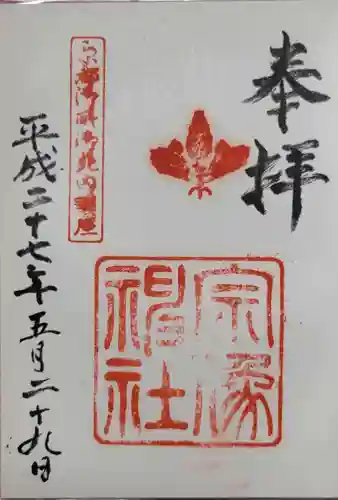 奉拝
宗像
神社
平成二十七年五月二十九日